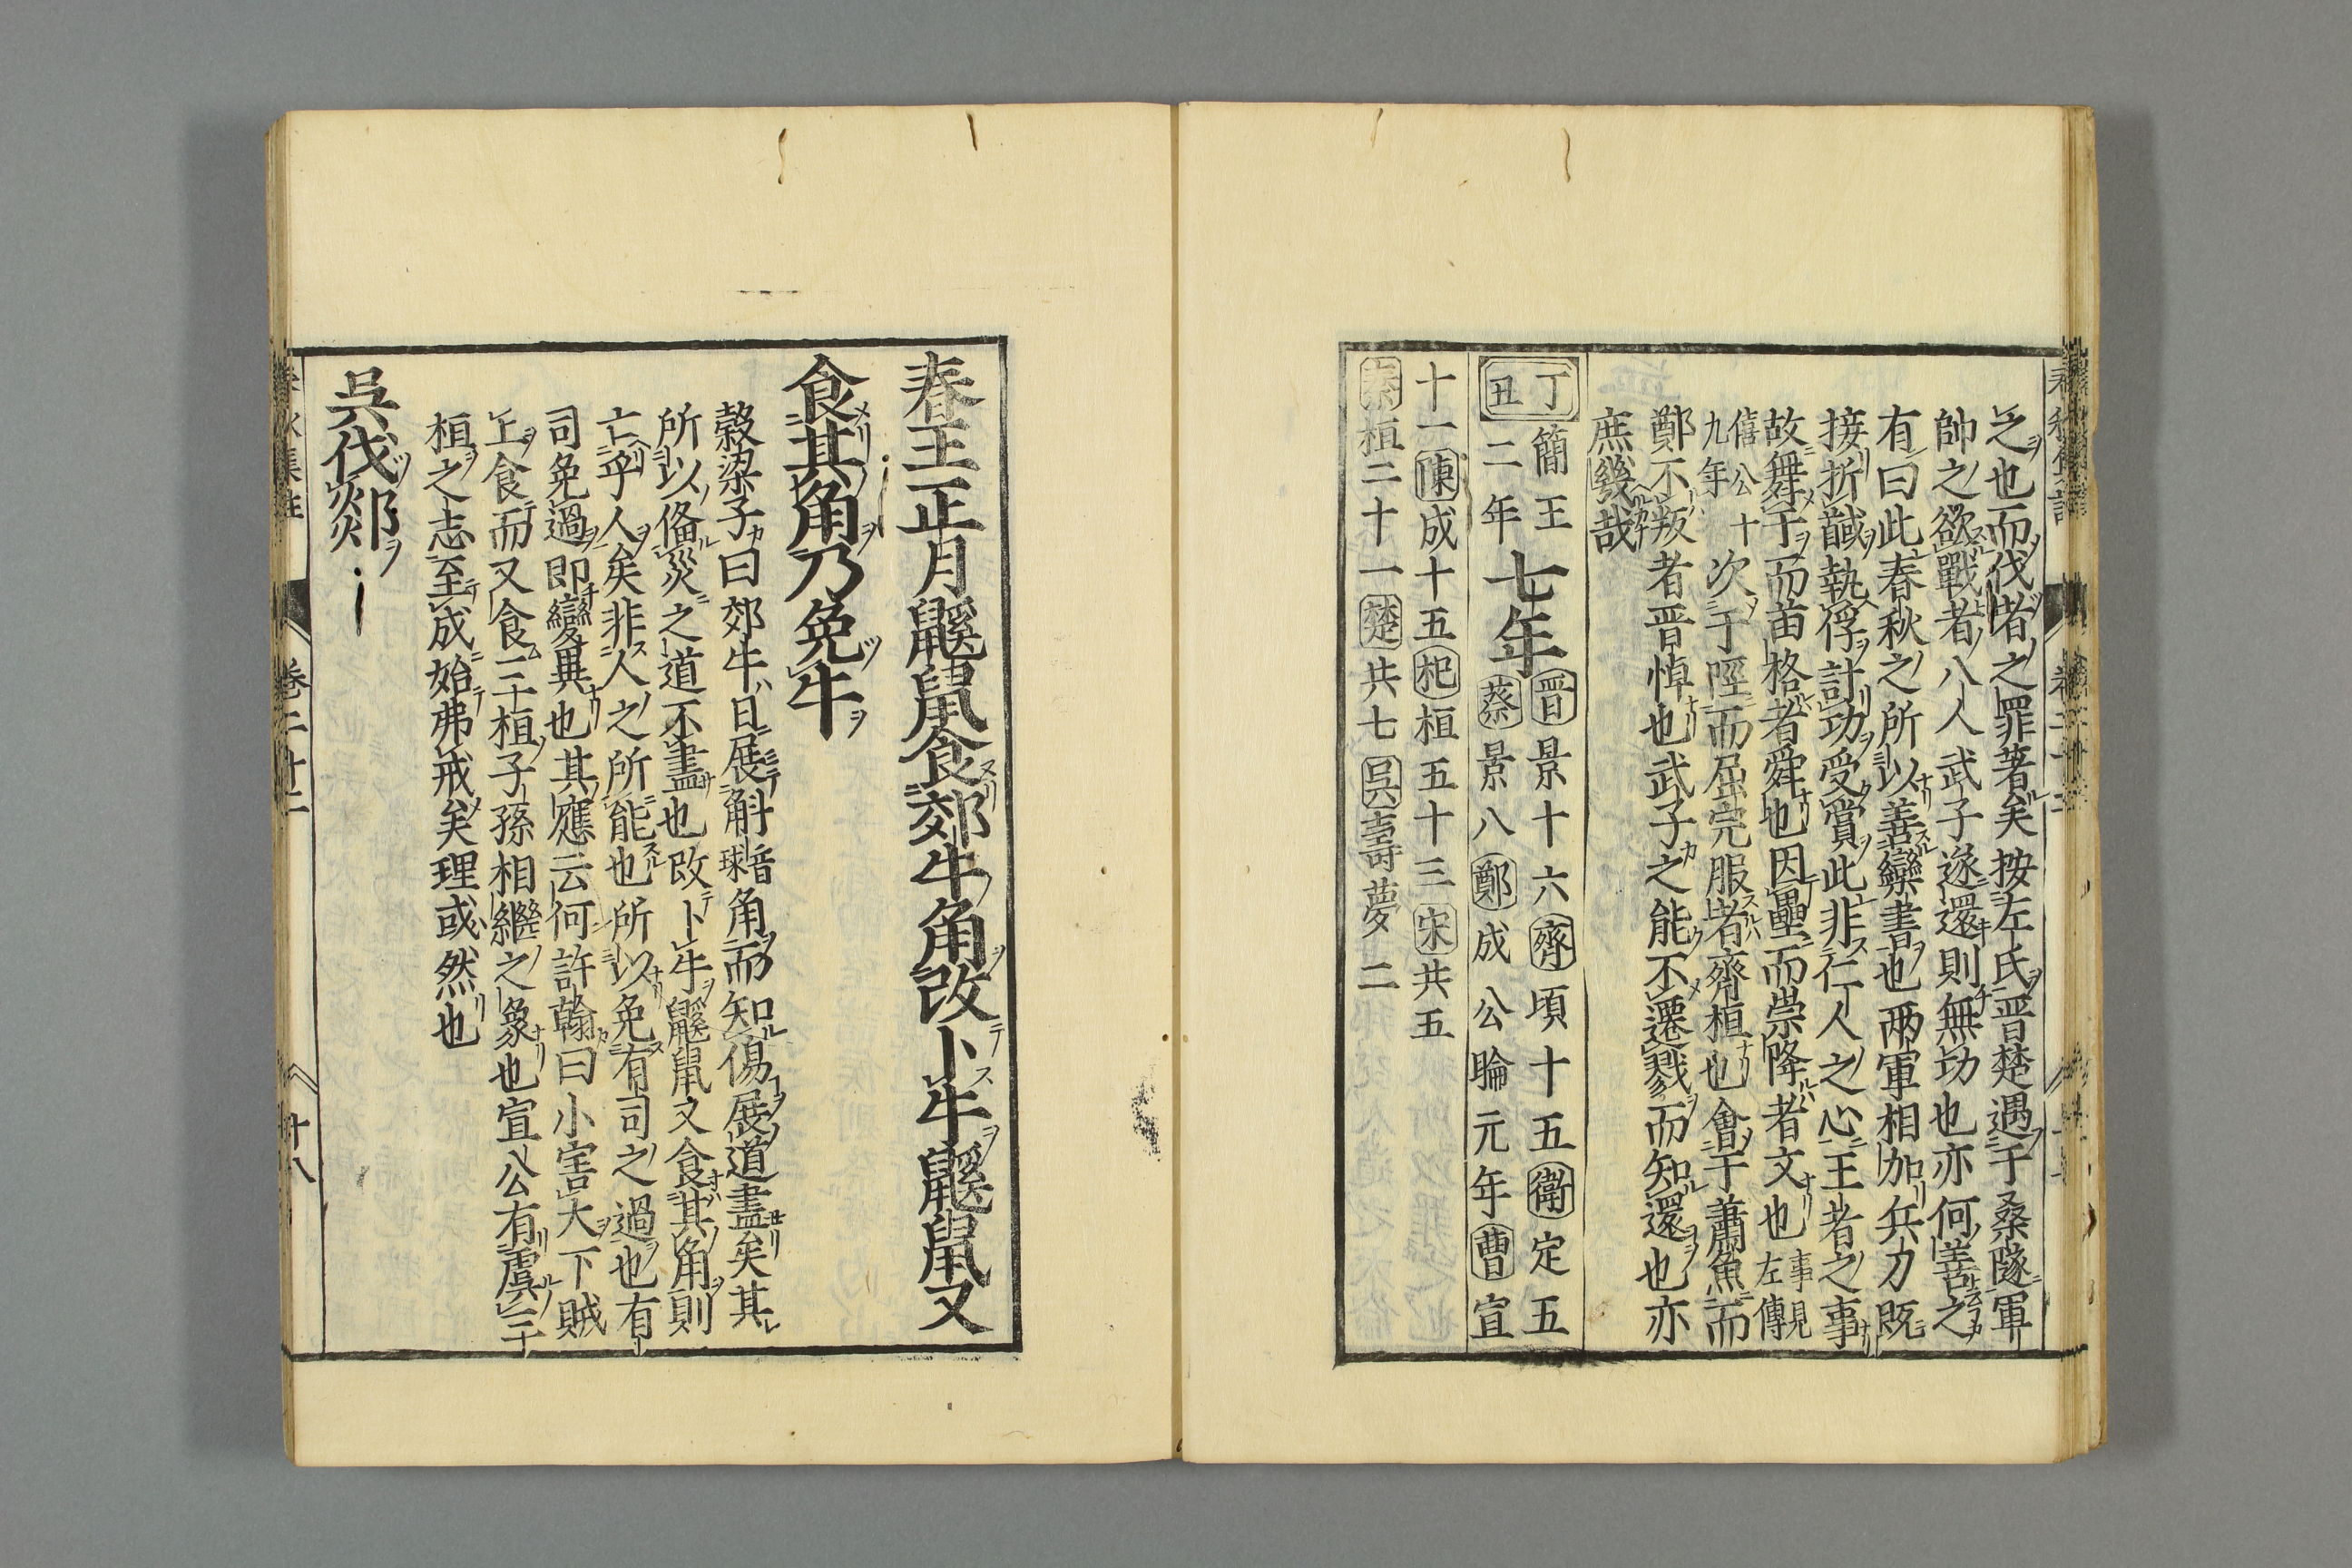 之也而伐者之罪著矣按左氏晋楚遇于桑隧軍
帥之欲戰者八人武子遂還則無功也亦何善之
有曰此春秋之所以善欒書也兩軍相加兵刀既
接折馘執俘計功受賞此非仁人之心王者之事
故舞于而苗格者舜也因壘而崇降者文也事見左傳
僖公十九年次于陘而屈完服者齊桓也會于蕭魚而
鄭不叛者晋悼也武子之能不遷戮而知還也亦
庶幾哉
丁丑簡王二年七年晋景十六齊頃十五衛定五蔡景八鄭成公睔元年曹宣
十一陳成十五杞桓五十三宋共五
秦桓二十一楚共七吳壽夢二
春王正月鼷鼠食郊牛角改卜牛鼷鼠又
食其角乃免牛
穀梁子曰郊牛日展斛音球角而知傷展道盡矣其
所以俻災之道不盡也改卜牛鼷鼠又食其角則
亡乎人矣非人之所能也所以免有司之過也有
司免過即變異也其應云何許翰曰小害大下賊
上食而又食三桓子孫相繼之象也宣公有虞三
桓之志至成始弗戒矣理或然也
吳伐郯
春秋集註 卷二十二 十八